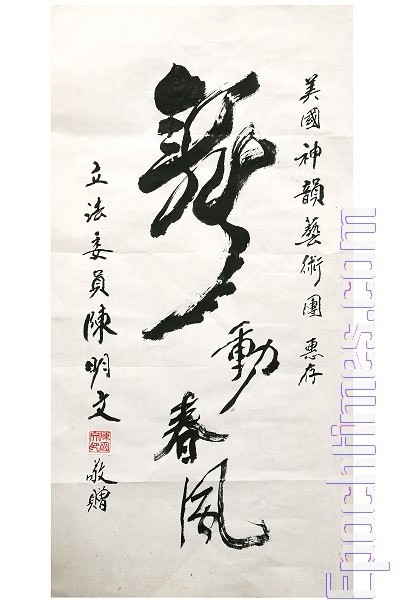 美國神韻藝術團 惠存
舞動春風
立法委員陳明文 敬贈
epochtimes.com